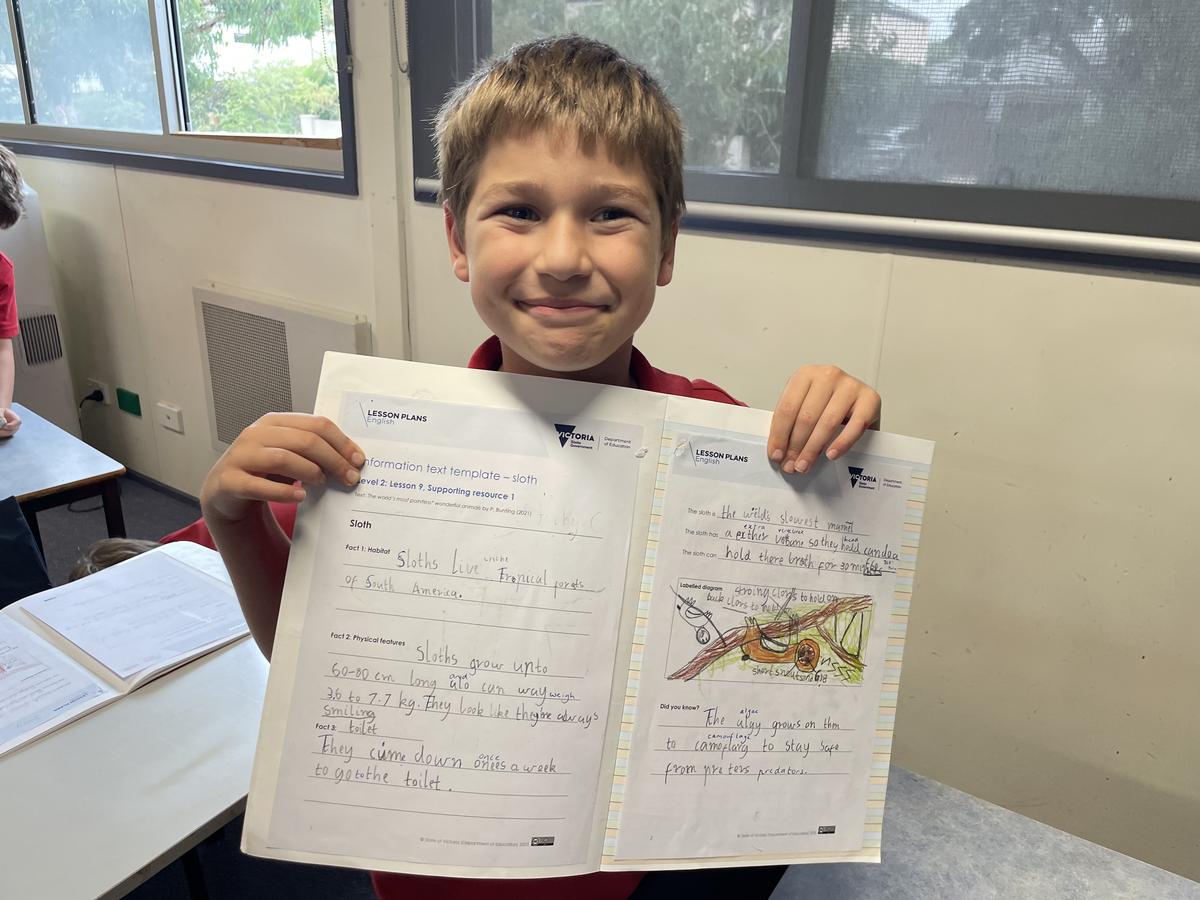 LESSON PLANS
English
VICTORIA
State
Government
Department
of Education
Information text template – sloth
Level 2: Lesson 9, Supporting resource 1
Text: The world's most pointless* wonderful animals by P. Bunting (2021)
Sloth
Fact 1: Habitat Sloths Live in the Tropical forests
of South America.
Fact 2: Physical features Sloths grow up to
60-80 cm long and alo can way weigh
3.6 to 7.7 kg. They look like they're always
smiling
Fact 3: toilet
They cume down once onees a week
to go to the toilet.
© State of Victoria (Department of Education) 2023
LESSON PLANS
English
VICTORIA
State
Government
Department
of Education
The sloth is the welds slowest
extra
The sloth has a so they hold
head
The sloth can hold there brath for 30
Labelled diagram
stroing clors to hold on
back clors to
short snout
Did you know? The algy grows on thm
algae
camouflage
to camoflarg to stay safe
from predators.
2
© State of Victoria (Department of Education) 2023